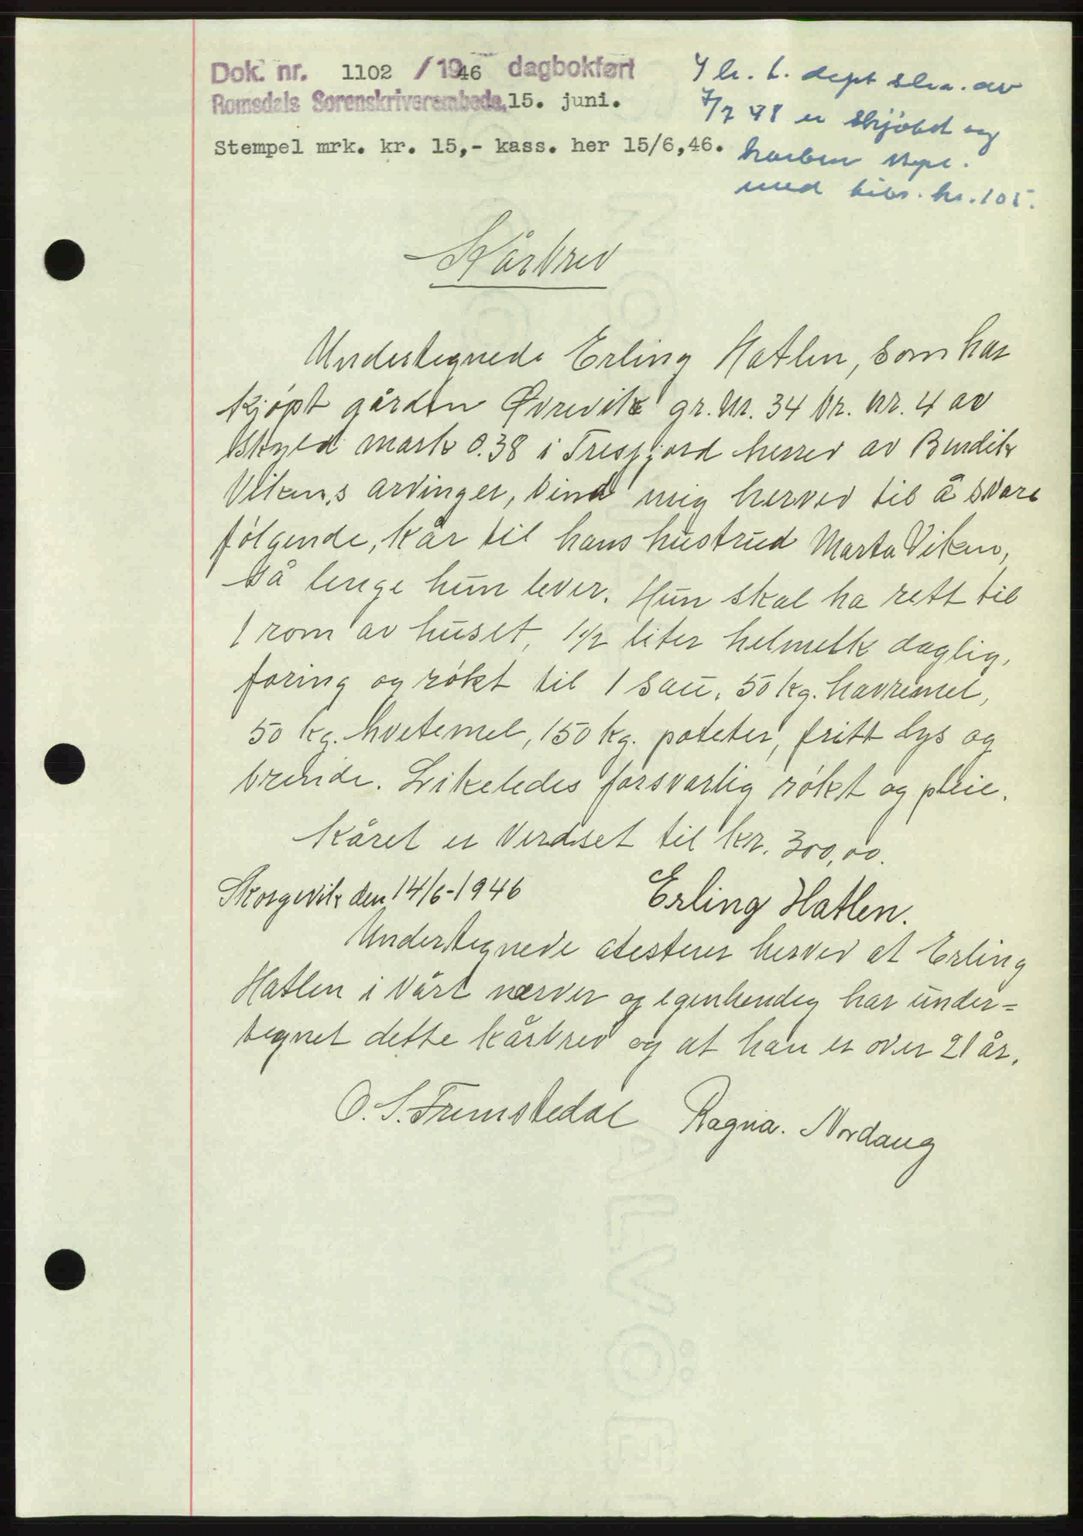 Dok. nr. 1102 / 1946 dagbokført
Romsdals Sorenskriverembede, 15. juni.
Stempel mrk. kr. 15,- kass. her 15/6,46.
dept. av
7/7 48 er skjøtet og
med kr. 105.
Kårbrev
Undertegnede Erling Hatlen, som har
kjøpt gården Øvrevik gr. nr. 34 br. nr. 4 av
skyld mark 0.38 i Tresfjord herred av Bendik
Viken,s arvinger, bind mig herved til å svare
følgende, kår til hans hustrud Marta Viken,
så lenge hun lever. Hun skal ha rett til
1 rom av huset, 1 1/2 liter helmelk daglig,
foring og røkt til 1 sau, 50 kg. havremel,
50 kg. hvetemel, 150 kg. poteter, fritt lys og
brende. Likeledes forsvarlig røkt og pleie.
Kåret er verdset til kr. 300,00.
Skorgevik den 14/6-1946 Erling Hatlen.
Undertegnede atesterer herved at Erling
Hatlen i vårt nærver og egenhendig har under=
tegnet dette kårbrev og at han er over 21 år.
O. S. Fremstedal Ragna. Nordaug